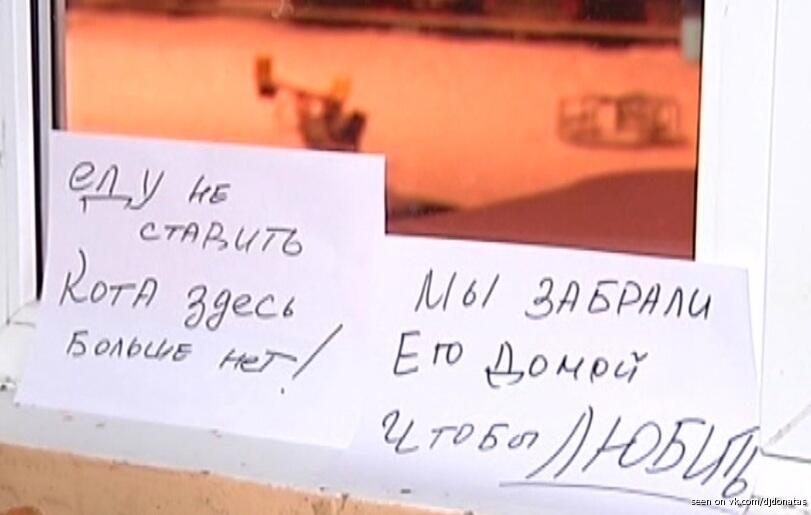 еду не
ставить
Кота здесь
больше нет!
Мы забрали
Его домой
Чтобы ЛЮБИТЬ
seen on vk.com/djdonatas